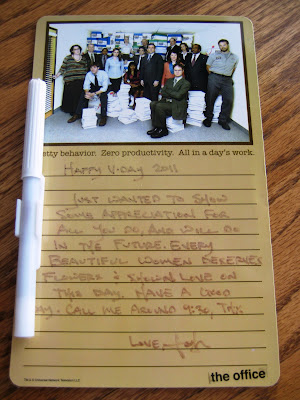 etty behavior. Zero productivity. All in a day's work.
HAPPY V-DAY 2011
JUST WANTED TO SHOW
SOME APPRECIATION FOR
ALL YOU DO, AND WILL DO
IN THE FUTURE. EVERY
BEAUTIFUL WOMEN DESERVES
FLOWERS & LOVE ON
THIS DAY. HAVE A GOOD
AY. CALL ME AROUND 9:30,
LOVE,
the office